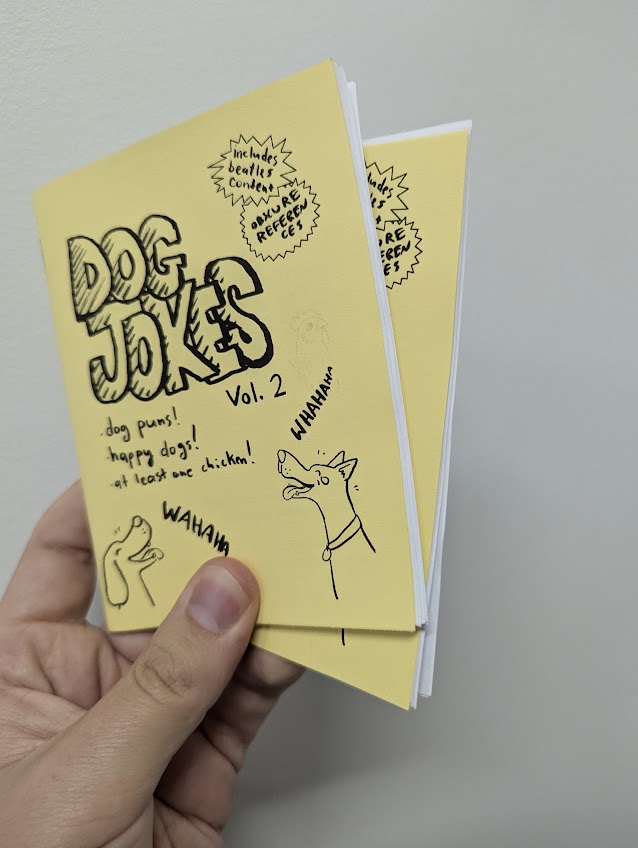 includes
beatles
content
OBSCURE
REFEREN
CES
DOG
JOKES
Vol. 2
·dog puns!
·happy dogs!
·at least one chicken!
WHAHAHA
WAHAHA